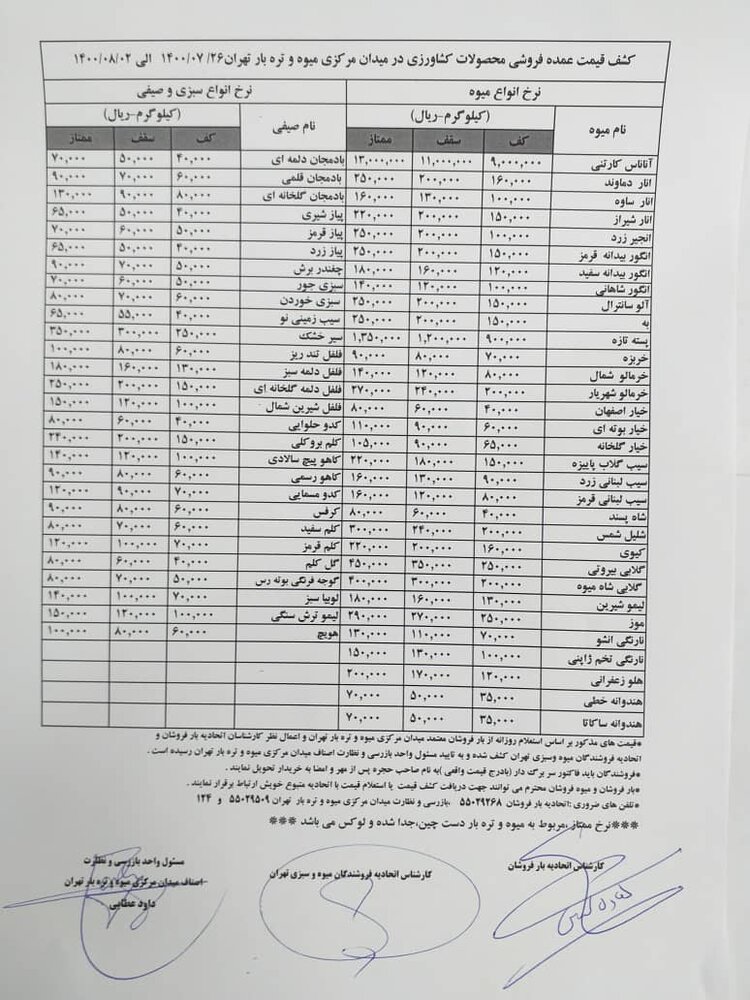 کشف قیمت عمده فروشی محصولات کشاورزی در میدان مرکزی میوه و تره بار تهران ۱۴۰۰/۰۷/۲۶ الی ۱۴۰۰/۰۸/۰۲
نرخ انواع میوه نرخ انواع سبزی و صیفی
نام میوه (کیلوگرم-ریال) نام صیفی (کیلوگرم-ریال)
کف سقف ممتاز کف سقف ممتاز
آناناس کارتنی ۹,۰۰۰,۰۰۰ ۱۱,۰۰۰,۰۰۰ ۱۳,۰۰۰,۰۰۰ بادمجان دلمه ای ۴۰,۰۰۰ ۵۰,۰۰۰ ۷۰,۰۰۰
انار دماوند ۱۶۰,۰۰۰ ۲۰۰,۰۰۰ ۲۵۰,۰۰۰ بادمجان قلمی ۶۰,۰۰۰ ۷۰,۰۰۰ ۹۰,۰۰۰
انار ساوه ۱۰۰,۰۰۰ ۱۳۰,۰۰۰ ۱۶۰,۰۰۰ بادمجان گلخانه ای ۸۰,۰۰۰ ۹۰,۰۰۰ ۱۳۰,۰۰۰
انار شیراز ۱۵۰,۰۰۰ ۲۰۰,۰۰۰ ۲۲۰,۰۰۰ پیاز شیری ۴۰,۰۰۰ ۵۰,۰۰۰ ۶۵,۰۰۰
انجیر زرد ۱۰۰,۰۰۰ ۲۰۰,۰۰۰ ۲۵۰,۰۰۰ پیاز قرمز ۵۰,۰۰۰ ۶۰,۰۰۰ ۷۰,۰۰۰
انگور بیدانه قرمز ۱۵۰,۰۰۰ ۲۰۰,۰۰۰ ۲۵۰,۰۰۰ پیاز زرد ۴۰,۰۰۰ ۵۰,۰۰۰ ۶۵,۰۰۰
انگور بیدانه سفید ۱۲۰,۰۰۰ ۱۶۰,۰۰۰ ۱۸۰,۰۰۰ چغندر برش ۵۰,۰۰۰ ۷۰,۰۰۰ ۹۰,۰۰۰
انگور شاهانی ۱۰۰,۰۰۰ ۱۲۰,۰۰۰ ۱۴۰,۰۰۰ سبزی جور ۵۰,۰۰۰ ۶۰,۰۰۰ ۷۰,۰۰۰
آلو سانترال ۱۵۰,۰۰۰ ۲۰۰,۰۰۰ ۲۵۰,۰۰۰ سبزی خوردن ۶۰,۰۰۰ ۷۰,۰۰۰ ۸۰,۰۰۰
به ۱۵۰,۰۰۰ ۲۰۰,۰۰۰ ۲۵۰,۰۰۰ سیب زمینی نو ۴۰,۰۰۰ ۵۵,۰۰۰ ۶۵,۰۰۰
پسته تازه ۹۰۰,۰۰۰ ۱,۲۰۰,۰۰۰ ۱,۳۵۰,۰۰۰ سیر خشک ۲۵۰,۰۰۰ ۳۰۰,۰۰۰ ۳۵۰,۰۰۰
خربزه ۷۰,۰۰۰ ۸۰,۰۰۰ ۹۰,۰۰۰ فلفل تند ریز ۶۰,۰۰۰ ۸۰,۰۰۰ ۱۰۰,۰۰۰
خرمالو شمال ۸۰,۰۰۰ ۱۲۰,۰۰۰ ۱۴۰,۰۰۰ فلفل دلمه سبز ۱۳۰,۰۰۰ ۱۶۰,۰۰۰ ۱۸۰,۰۰۰
خرمالو شهریار ۲۰۰,۰۰۰ ۲۴۰,۰۰۰ ۲۷۰,۰۰۰ فلفل دلمه گلخانه ای ۱۵۰,۰۰۰ ۲۰۰,۰۰۰ ۲۵۰,۰۰۰
خیار اصفهان ۴۰,۰۰۰ ۶۰,۰۰۰ ۸۰,۰۰۰ فلفل شیرین شمال ۱۰۰,۰۰۰ ۱۲۰,۰۰۰ ۱۵۰,۰۰۰
خیار بوته ای ۶۰,۰۰۰ ۹۰,۰۰۰ ۱۱۰,۰۰۰ کدو حلوایی ۴۰,۰۰۰ ۶۰,۰۰۰ ۸۰,۰۰۰
خیار گلخانه ۶۵,۰۰۰ ۹۰,۰۰۰ ۱۰۵,۰۰۰ کلم بروکلی ۱۵۰,۰۰۰ ۲۰۰,۰۰۰ ۲۴۰,۰۰۰
سیب گلاب پاییزه ۱۵۰,۰۰۰ ۱۸۰,۰۰۰ ۲۲۰,۰۰۰ کاهو پیچ سالادی ۱۰۰,۰۰۰ ۱۲۰,۰۰۰ ۱۴۰,۰۰۰
سیب لبنانی زرد ۹۰,۰۰۰ ۱۳۰,۰۰۰ ۱۶۰,۰۰۰ کاهو رسمی ۶۰,۰۰۰ ۸۰,۰۰۰ ۹۰,۰۰۰
سیب لبنانی قرمز ۸۰,۰۰۰ ۱۲۰,۰۰۰ ۱۶۰,۰۰۰ کدو مسمایی ۷۰,۰۰۰ ۹۰,۰۰۰ ۱۲۰,۰۰۰
شاه پسند ۴۰,۰۰۰ ۶۰,۰۰۰ ۸۰,۰۰۰ کرفس ۶۰,۰۰۰ ۸۰,۰۰۰ ۹۰,۰۰۰
شلیل شمس ۲۰۰,۰۰۰ ۲۴۰,۰۰۰ ۳۰۰,۰۰۰ کلم سفید ۶۰,۰۰۰ ۷۰,۰۰۰ ۸۰,۰۰۰
کیوی ۱۶۰,۰۰۰ ۲۰۰,۰۰۰ ۲۲۰,۰۰۰ کلم قرمز ۷۰,۰۰۰ ۱۰۰,۰۰۰ ۱۲۰,۰۰۰
گلابی بیروتی ۲۵۰,۰۰۰ ۳۵۰,۰۰۰ ۴۵۰,۰۰۰ گل کلم ۴۰,۰۰۰ ۶۰,۰۰۰ ۸۰,۰۰۰
گلابی شاه میوه ۲۰۰,۰۰۰ ۳۰۰,۰۰۰ ۴۰۰,۰۰۰ گوجه فرنگی بوته رس ۵۰,۰۰۰ ۷۰,۰۰۰ ۸۰,۰۰۰
لیمو شیرین ۱۳۰,۰۰۰ ۱۶۰,۰۰۰ ۱۸۰,۰۰۰ لوبیا سبز ۷۰,۰۰۰ ۱۰۰,۰۰۰ ۱۴۰,۰۰۰
موز ۲۵۰,۰۰۰ ۲۷۰,۰۰۰ ۲۹۰,۰۰۰ لیمو ترش سنگی ۱۰۰,۰۰۰ ۱۲۰,۰۰۰ ۱۵۰,۰۰۰
نارنگی انشو ۷۰,۰۰۰ ۱۱۰,۰۰۰ ۱۳۰,۰۰۰ هویچ ۶۰,۰۰۰ ۸۰,۰۰۰ ۱۰۰,۰۰۰
نارنگی تخم ژاپنی ۱۰۰,۰۰۰ ۱۳۰,۰۰۰ ۱۵۰,۰۰۰
هلو زعفرانی ۱۲۰,۰۰۰ ۱۷۰,۰۰۰ ۲۰۰,۰۰۰
هندوانه خطی ۳۵,۰۰۰ ۵۰,۰۰۰ ۷۰,۰۰۰
هندوانه ساکاتا ۳۵,۰۰۰ ۵۰,۰۰۰ ۷۰,۰۰۰
*قیمت های مذکور بر اساس استعلام روزانه از بار فروشان معتمد میدان مرکزی میوه و تره بار تهران و اعمال نظر کارشناسان اتحادیه بار فروشان و
اتحادیه فروشندگان میوه وسبزی تهران کشف شده و به تایید مسئول واحد بازرسی و نظارت اصناف میدان مرکزی میوه و تره بار تهران رسیده است .
*فروشندگان باید فاکتور سر برگ دار (بادرج قیمت واقعی )به نام صاحب حجره پس از مهر و امضا به خریدار تحویل نمایند .
*بار فروشان و میوه فروشان محترم می توانند جهت دریافت کشف قیمت یا استعلام قیمت با اتحادیه متبوع خویش ارتباط برقرار نمایند .
*تلفن های ضروری :اتحادیه بار فروشان ۵۵۰۲۹۲۶۸ -بازرسی و نظارت میدان مرکزی میوه و تره بار تهران ۵۵۰۲۹۵۰۹ و ۱۲۴
***نرخ ممتاز ،مربوط به میوه و تره بار دست چین،جدا شده و لوکس می باشد ***
کارشناس اتحادیه بار فروشان
کارشناس اتحادیه فروشندگان میوه و سبزی تهران
مسئول واحد بازرسی و نظارت
اصناف میدان مرکزی میوه و تره بار تهران
داود عطایی